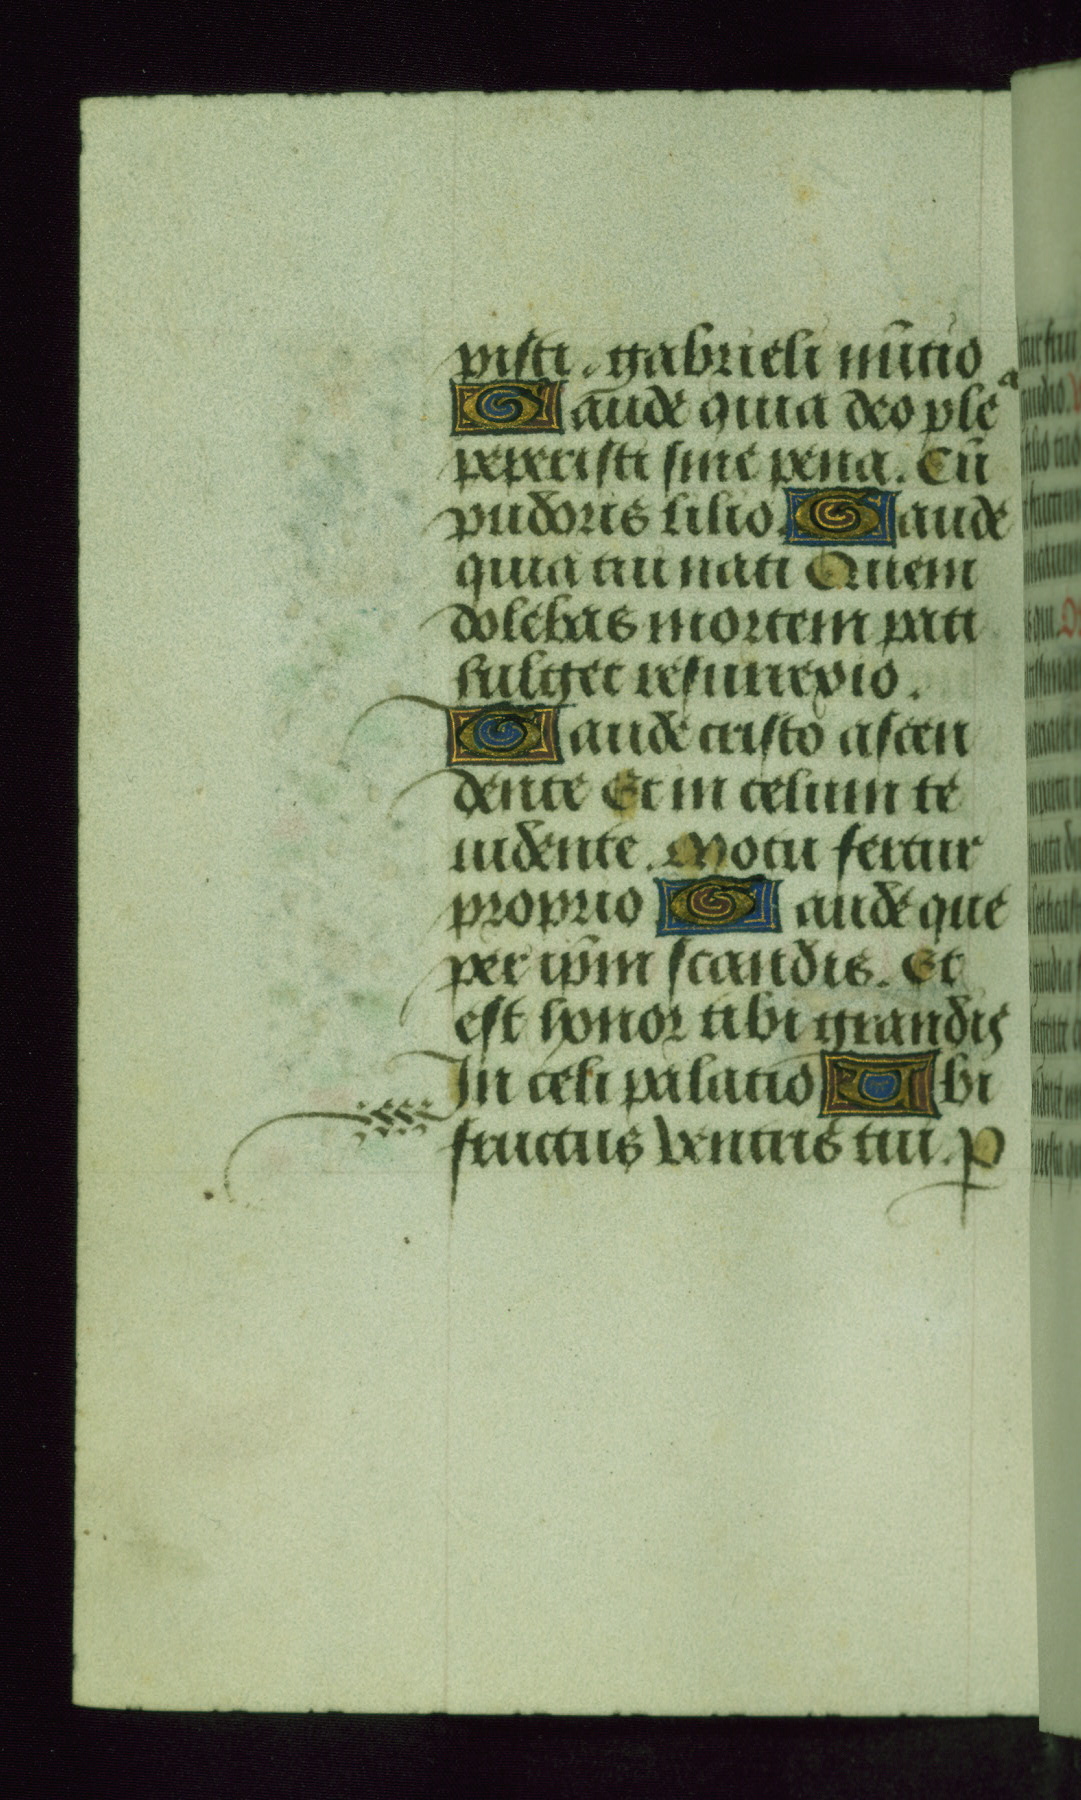 pisti. gabrieli nūtio
Gaude quia deo plēa
peperisti sine pena. Cū
pudoris lilio. Gaude
quia tui nati Quem
dolebas mortem pati
fulget resurrexio.
Gaude cristo ascen
dente Et in celum te
uidente. Motu fertur
proprio Gaude que
per ip̄m scandis. Et
est honor tibi grandis
In celi palatio Ubi
fructus ventris tui. P